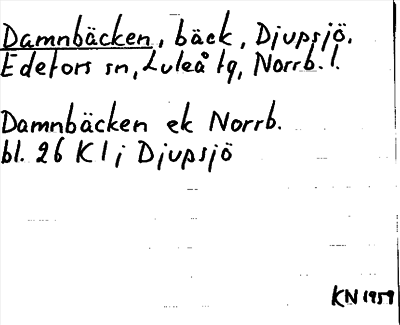 Damnbäcken, bäck, Djupsjö.
Edefors sn, Luleå tg, Norrb. l.
Damnbäcken ek Norrb.
bl. 26 K l; Djupsjö
KN 1959